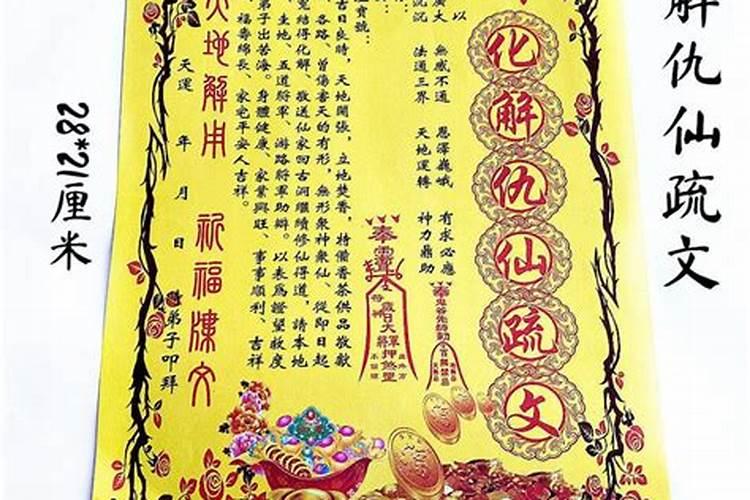 解仇仙疏文
化解仇仙疏文
以
廣大 無感不通 恩澤巍峨 有求必應
沉沉 法通三界 天地運轉 神力鼎助
奉
寶號：
吉日良時，天地開張，立地焚香，特備香茶供品敬獻
各路、曾傷害天的有形，無形眾神眾仙、從即日起
冤結得化解、敬送仙家回古洞繼續修仙得道，請本地
土地、五道將軍、游路將軍助辯。以表為證望敬度
弟子出苦海。身體健康、家業興旺、事事順利、吉祥
福壽綿長、家宅平安人吉祥。
天地解用 祈福陳文
天運 年 月 日 弟子叩拜
28*21厘米